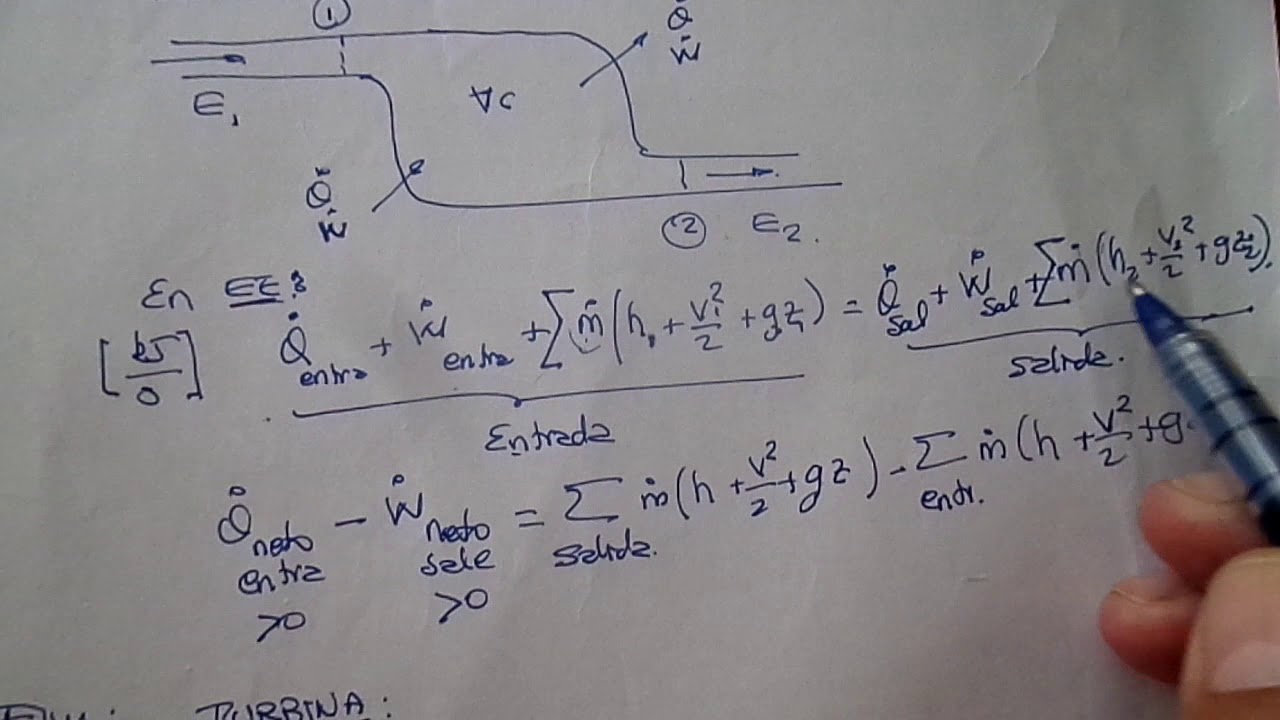 ①
Q̇
Ẇ
E₁
∀c
Q̇
Ẇ
② E₂.
En EE:
[kJ/s] Q̇entra + Ẇentra + Σṁ(h₁ + V₁²/2 + gz₁) = Q̇sal + Ẇsal + Σṁ(h₂ + V₂²/2 + gz₂).
Entrada
salida.
Q̇neto entra − Ẇneto sale = Σsalida. ṁ(h + V²/2 + gz) − Σentr. ṁ(h + V²/2 + g
>0 >0
TURBINA: